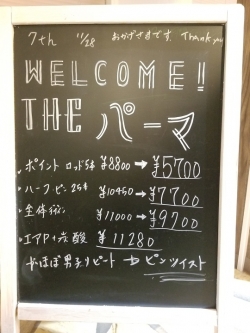 7th 11/28 おかげさまです Thank you
WELCOME!!
THE パーマ
ポイント ロッド5本 ¥8800 → ¥5700
ハーフ・ピン25本 ¥10450 → ¥7700
全体 ¥11000 → ¥9700
エアP+炭酸 ¥11280
やはぼ男子リピート → ピンツイスト